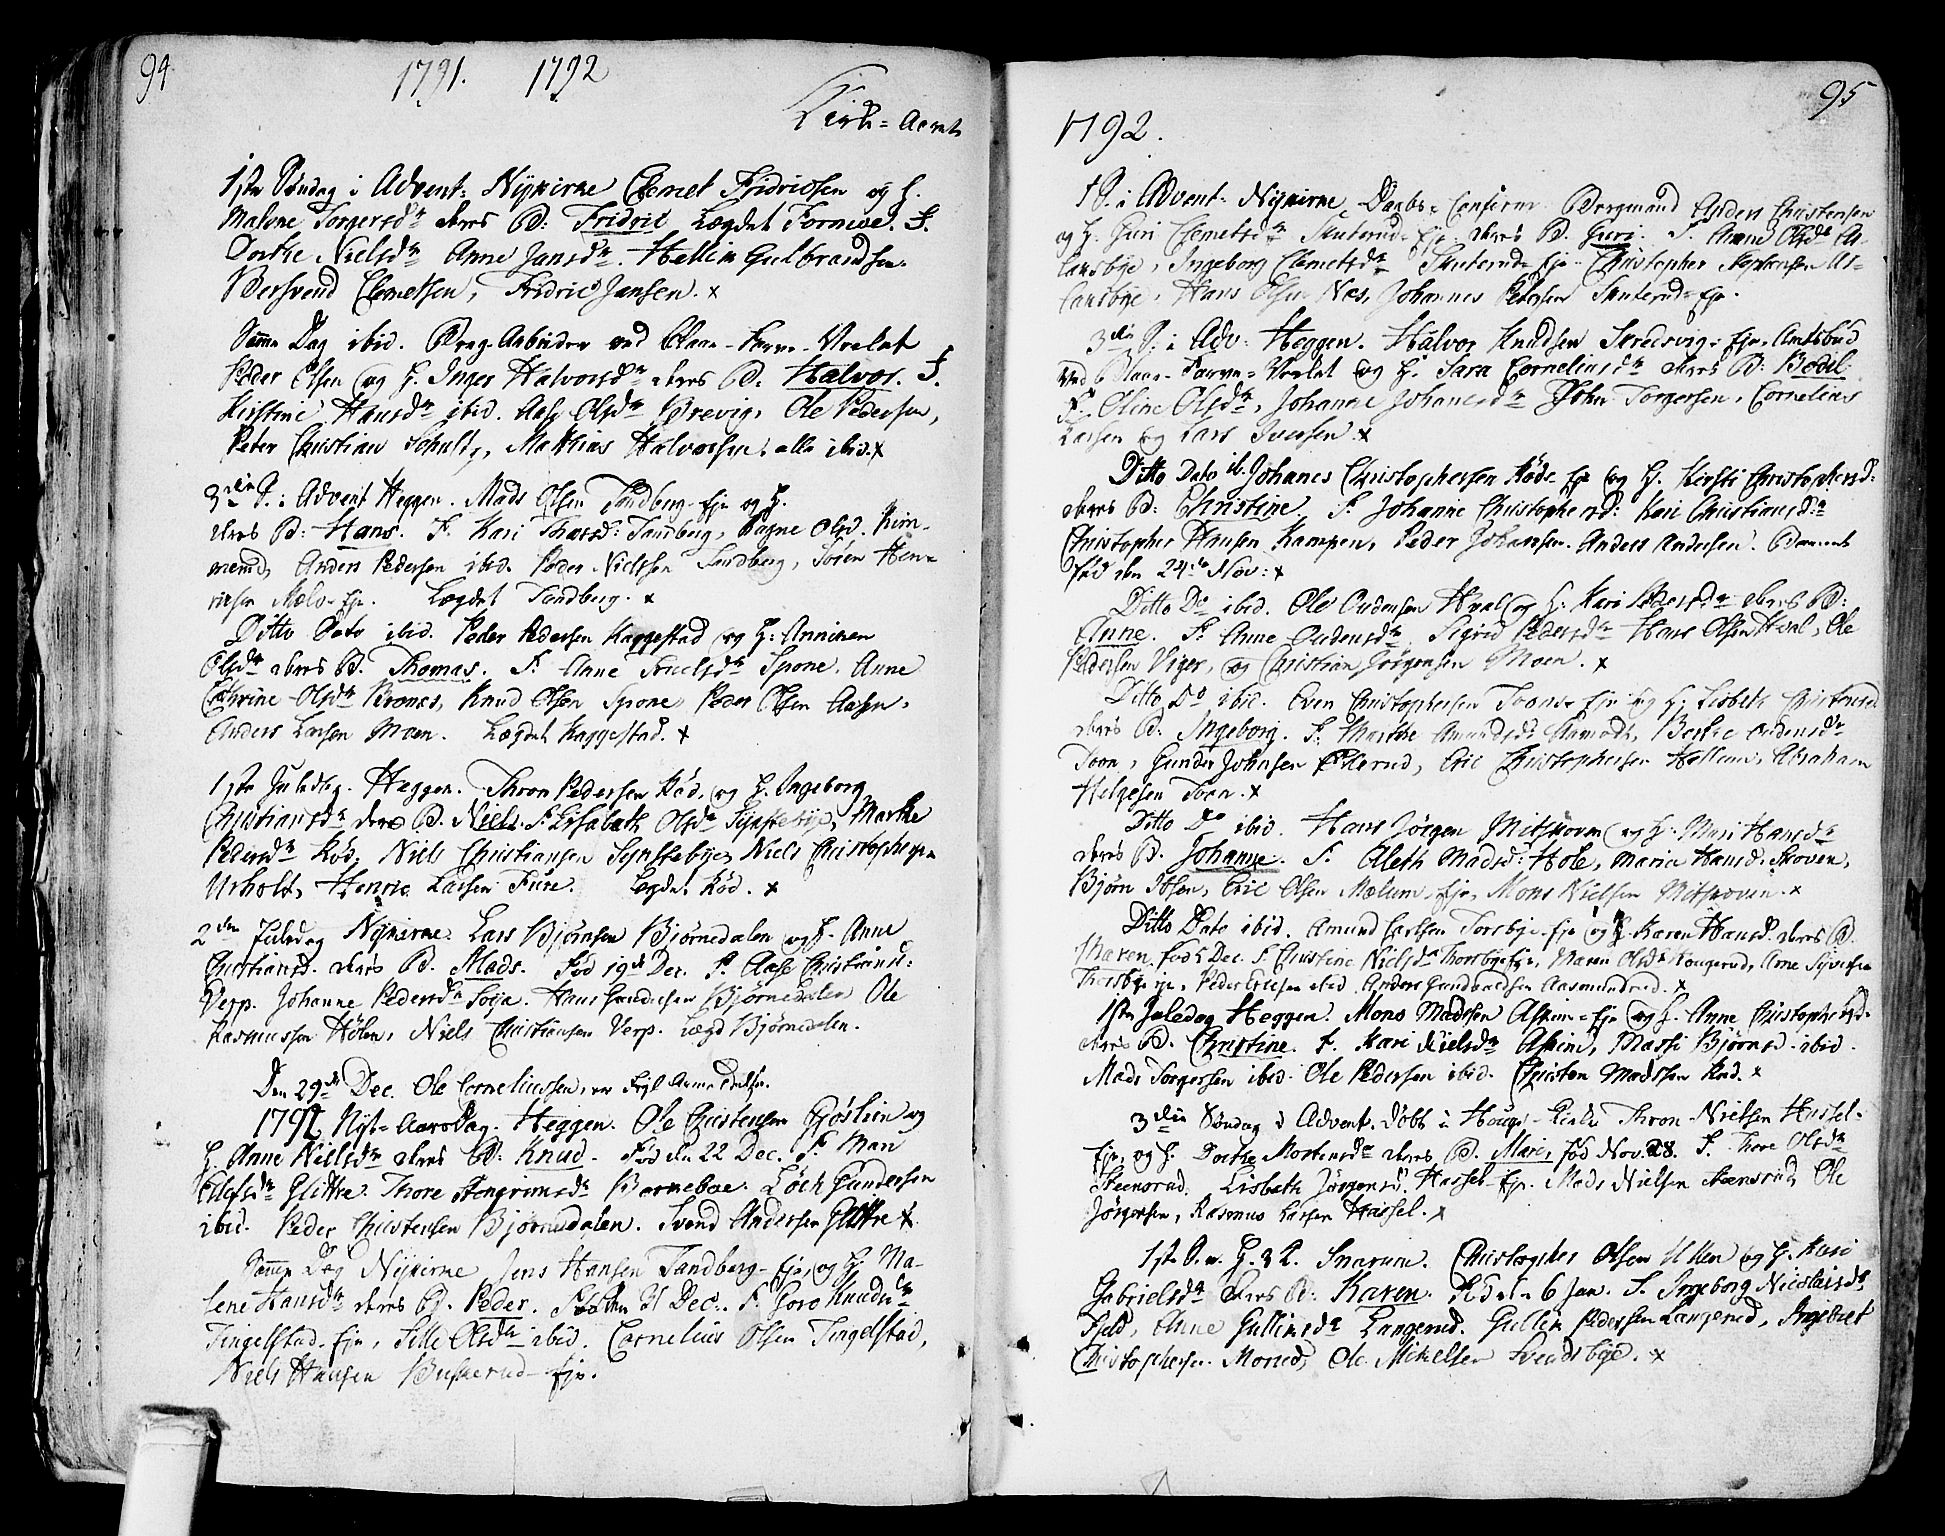 94.
1791. 1792
Kirke-Aaret
1ste Søndag i Advent. Nykirke Clemet Fridricsen og H.
Malene Torgersdr deres B: Fridric Lægdet Fornese. F.
Dorthe Nielsdr Anne Jansdr. Hellin Gulbrandsen.
Bersvend Clemetsen, Fridric Jansen. x
Samme Dag ibid. Brug-Arbeider ved Blaae-Farve-Verket
Peder Olsen og H. Inger Halvorsdr deres B. Halvor. F.
Kirstine Hansdr ibid. Aase Olsdr Brevig, Ole Pedersen,
Peter Christian Schultz, Mathias Halvorsen, alle ibid. x
3die S. i Advent Heggen. Mads Olsen Sandberg-Eje og H.
deres B: Hans. F. Kari Tharsd: Sandberg, Ragne Olsd. Kim-
nerud, Anders Pedersen ibid. Peder Nielsen Sandberg, Søren Hen-
ricsen Mælo-Eje. Lægdet Sandberg. x
Ditto Dato ibid. Peder Pedersen Kaggestad og H: Anniken
Olsdr deres B. Thomas. F. Anne Troelsdr Spone. Anne
Cathrine Olsdr Bronæs, Knud Olsen Spone, Peder Olsen Aasen,
Anders Larsen Moen. Lægdet Kaggestad. x
1ste Juledag. Heggen. Thron Pedersen Kød, og H. Ingeborg
Christiansdr deres B. Niels. F. Lisabeth Olsdr Synstebye, Marthe
Pedersdr Kød, Niels Christiansen Synstebye, Niels Christophersen
Urholt, Henric Larsen Fure. Lægdet Kød. x
2den Juledag Nykirke. Lars Bjørnsen Bjørnedalen og H. Anne
Christiansd. deres B. Mads. Fød 19de Dec. F. Aase Christiansd:
Verp. Johanne Pedersdr Soya. Hans Gundersen Bjørnedalen Ole
Rasmussen Hølen, Niels Christiansen Verp. Lægd Bjørnedalen.
Den 29de Dec. Ole Corneliussen,
1792 Nyt-Aars Dag. Heggen. Ole Christensen Gjøslien og
H. Anne Nielsdr deres B: Knud. Fød den 22 Dec. F. Mari
Olefsdr Glittre. Thore Stengrimsdr Borneboe. Løch Gundersen
ibid. Peder Christensen Bjørnedalen. Svend Andersen Glittre x
Samme Dag Nykirke Jens Hansen Sandberg-Eje, og H. Ma-
lene Hansdr deres B. Peder. Fød den 31 Dec. F. Goro Knudsdr
Tingelstad-Eje, Sille Olsdr ibid. Cornelius Olsen Tingelstad,
Niels Hansen Buskerud-Eje.
95
1792.
1 S. i Advent. Nykirke Daabs-Confirm. Bergmand Anders Christensen
og H. Guri Clemetsdr Skuterud-Eje deres B. Guri. F. Anne Olsdr As-
lansbye, Ingeborg Clemetsdr Skuterud-Eje Christopher Stephensen As-
lansbye, Hans Olsen Næs, Johannes Petersen Skuterud-Eje.
3die S. i Adv: Heggen. Halvor Knudsen Skredsvig-Eje, Amtsbud
ved Blaae-Farve-Verket og H. Sara Corneliusdr deres B: Bodil
F. Oline Olsdr, Johanne Johansdr John Torgersen, Cornelius
Larsen og Lars Iversen. x
Ditto Dato ib. Johanes Christophersen Røde Eje og H. Kirsti Christophersd:
deres B: Christine F. Johanne Christophersd: Kari Christiansdr:
Christopher Hansen Kampen, Peder Johansen. Anders Andersen. Barnet
fød den 24de Nov: x
Ditto Do ibid. Ole Oudensen Hval og H. Kari Pedersdr deres B:
Anne. F. Anne Oudensdr Sigrid Pedersdr Hans Olsen Hval, Ole
Pedersen Viger, og Christian Jørgensen Moen. x
Ditto Do ibid. Even Christophersen Toane-Eje og H. Lisbeth Christensd
deres B. Ingeborg. F. Marthe Amundsdr Aamodt, Berthe Oudensdr
Toon, Gunder Johnsen Ellerud, Eric Christophersen Hellum, Abraham
Helgesen Toen. x
Ditto Do ibid. Hans Jørgen Mitskoven og H. Mari Hansdr
deres B. Johanne. F. Aleth Madsd: Hole, Maria Hansd. Skoven,
Bjørn Ibsen, Eric Olsen Mælum-Eje, Mons Nielsen Mitskoven. x
Ditto Dato ibid. Amund Carlsen Torsbye-Eje og H. Karen Hansd. deres B.
Maren. fød Dec. F. Christine Nielsdr Thorsbye Eje, Maren Olsdr Kougerud, Arne Syversen
Thorsbye Eje, Peder Ericsen ibid. Anders Gundvaldsen Aasmundrud. x
1ste Juledag Heggen. Mons Madsen Askim-Eje og H. Anne Christophersd.
deres B. Christine. F. Kari Nielsdr Askim, Massi Bjørnsd ibid.
Mads Torgersen ibid. Ole Pedersen ibid. Christen Madsen Rud. x
3die Søndag i Advent. Døbt i Houge-Kirke Thron Nielsen Hassel-
Eje, og H. Dorthe Mortensdr deres B. Mari, fød Nov. 28. F. Thore Olsdr
Steensrud. Lisbeth Jørgensd: Hassel-Eje. Mads Nielsen Steensrud, Ole
Jørgensen, Rasmus Larsen Hassel. x
1ste S. e. H. 3 K. Snarum. Christopher Olsen Ulken og H. Kari
Gabrielsdr deres B: Karen. Fød den 6 Jan. F. Ingeborg Nicolaisdr
Fjeld, Anne Gullinsdr Langerud. Gullin Pedersen Langerud, Ingebret
Christophersen Morud, Ole Mikelsen Svendsbye. x